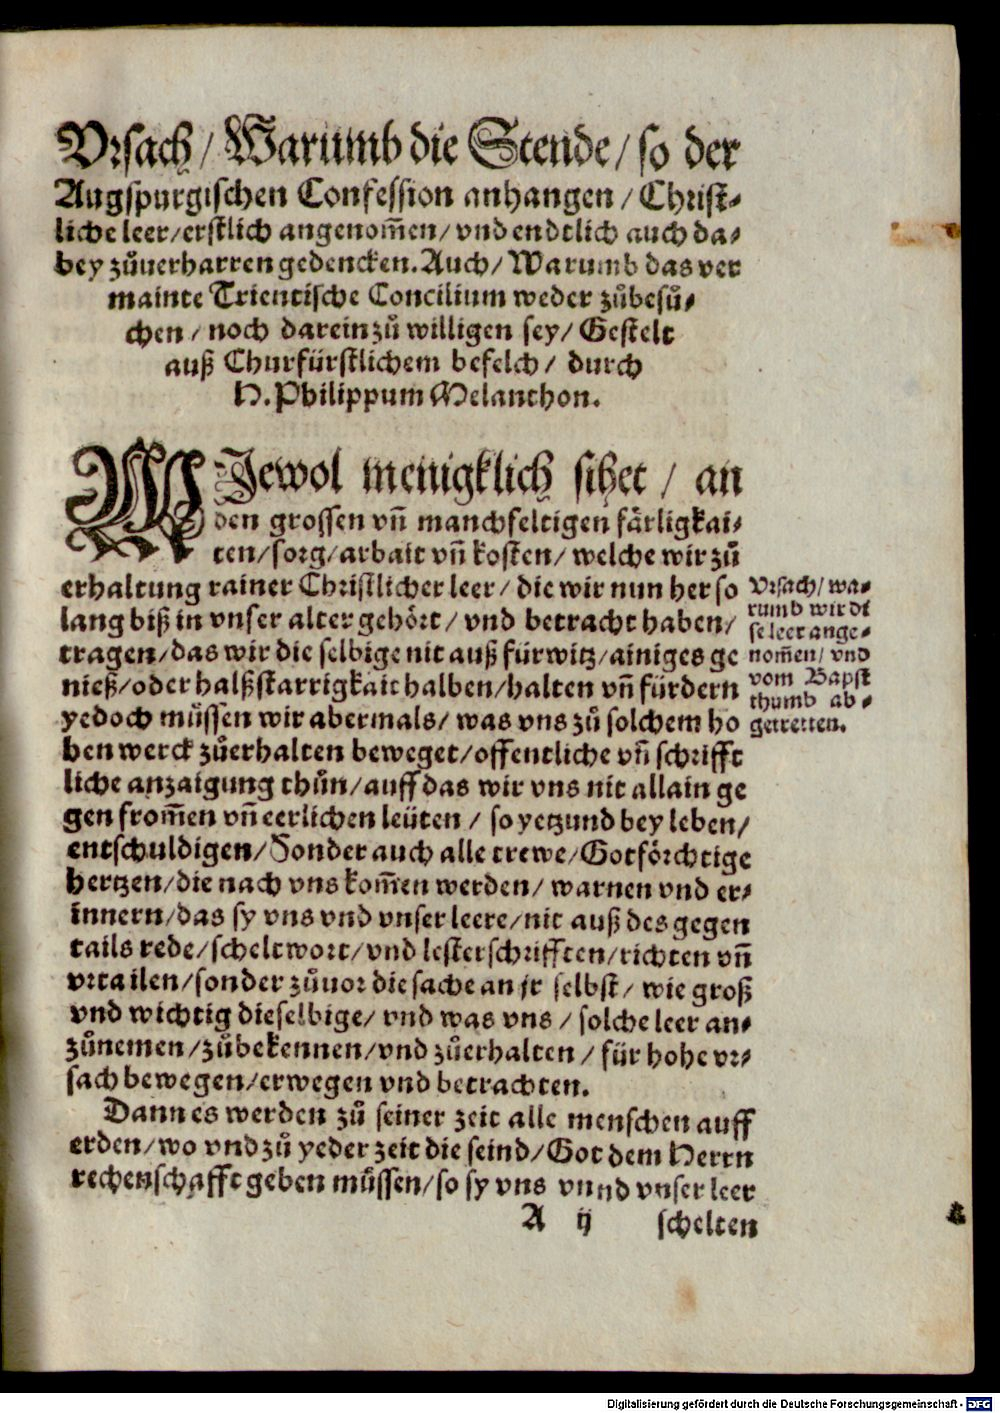 Vrsach / Warumb die Stende / so der
Augspurgischen Confession anhangen / Christ-
liche leer / erstlich angenom̃en / vnd endtlich auch da-
bey zůuerharren gedencken. Auch / Warumb das ver
mainte Trientische Concilium weder zůbesů-
chen / noch darein zů willigen sey / Gestelt
auß Churfürstlichem befelch / durch
H. Philippum Melanthon.
WJewol menigklich sihet / an
den grossen vn̄ manchfeltigen färligkai-
ten / sorg / arbait vn̄ kosten / welche wir zů
erhaltung rainer Christlicher leer / die wir nun her so
lang biß in vnser alter gehört / vnd betracht haben /
tragen / das wir die selbige nit auß fürwitz / ainiges ge
nieß / oder halßstarrigkait halben / halten vn̄ fürdern
yedoch můssen wir abermals / was vns zů solchem ho
ben werck zůerhalten beweget / offentliche vn̄ schrifft
liche anzaigung thůn / auff das wir vns nit allain ge
gen from̃en vn̄ eerlichen leüten / so yetzund bey leben /
entschuldigen / Sonder auch alle trewe / Gotförchtige
hertzen / die nach vns kom̃en werden / warnen vnd er-
innern / das sy vns vnd vnser leere / nit auß des gegen
tails rede / scheltwort / vnd lesterschrifften / richten vn̄
vrtailen / sonder zůuor die sache an jr selbst / wie groß
vnd wichtig dieselbige / vnd was vns / solche leer an-
zůnemen / zůbekennen / vnd zůerhalten / für hohe vr-
sach bewegen / erwegen vnd betrachten.
Dann es werden zů seiner zeit alle menschen auff
erden / wo vnd zů yeder zeit die seind / Got dem Herrn
rechenschafft geben můssen / so sy vns vnnd vnser leer
A ij schelten
Vrsach / wa-
rumb wir di
se leer ange-
nom̃en / vnd
vom Bapst
thumb ab-
getretten.
Digitalisierung gefördert durch die Deutsche Forschungsgemeinschaft - DFG